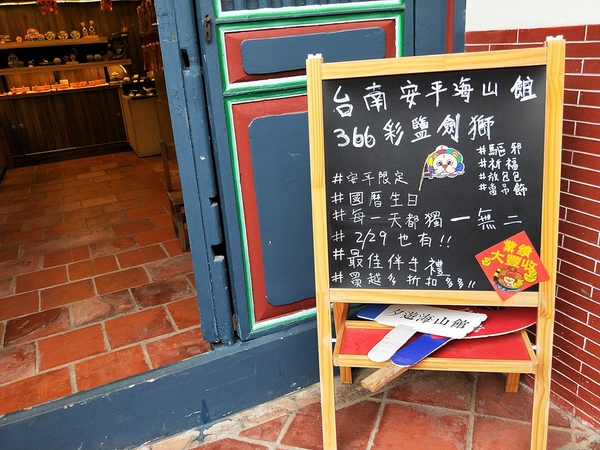 台南安平海山館
366彩鹽劍獅
#驅邪
#祈福
#放包包
#當吊飾
#安平限定
#國曆生日
#每一天都獨一無二
#2/29也有!!
#最佳伴手禮
#買越多折扣多多!!
業績
大豐收
夕遊海山館